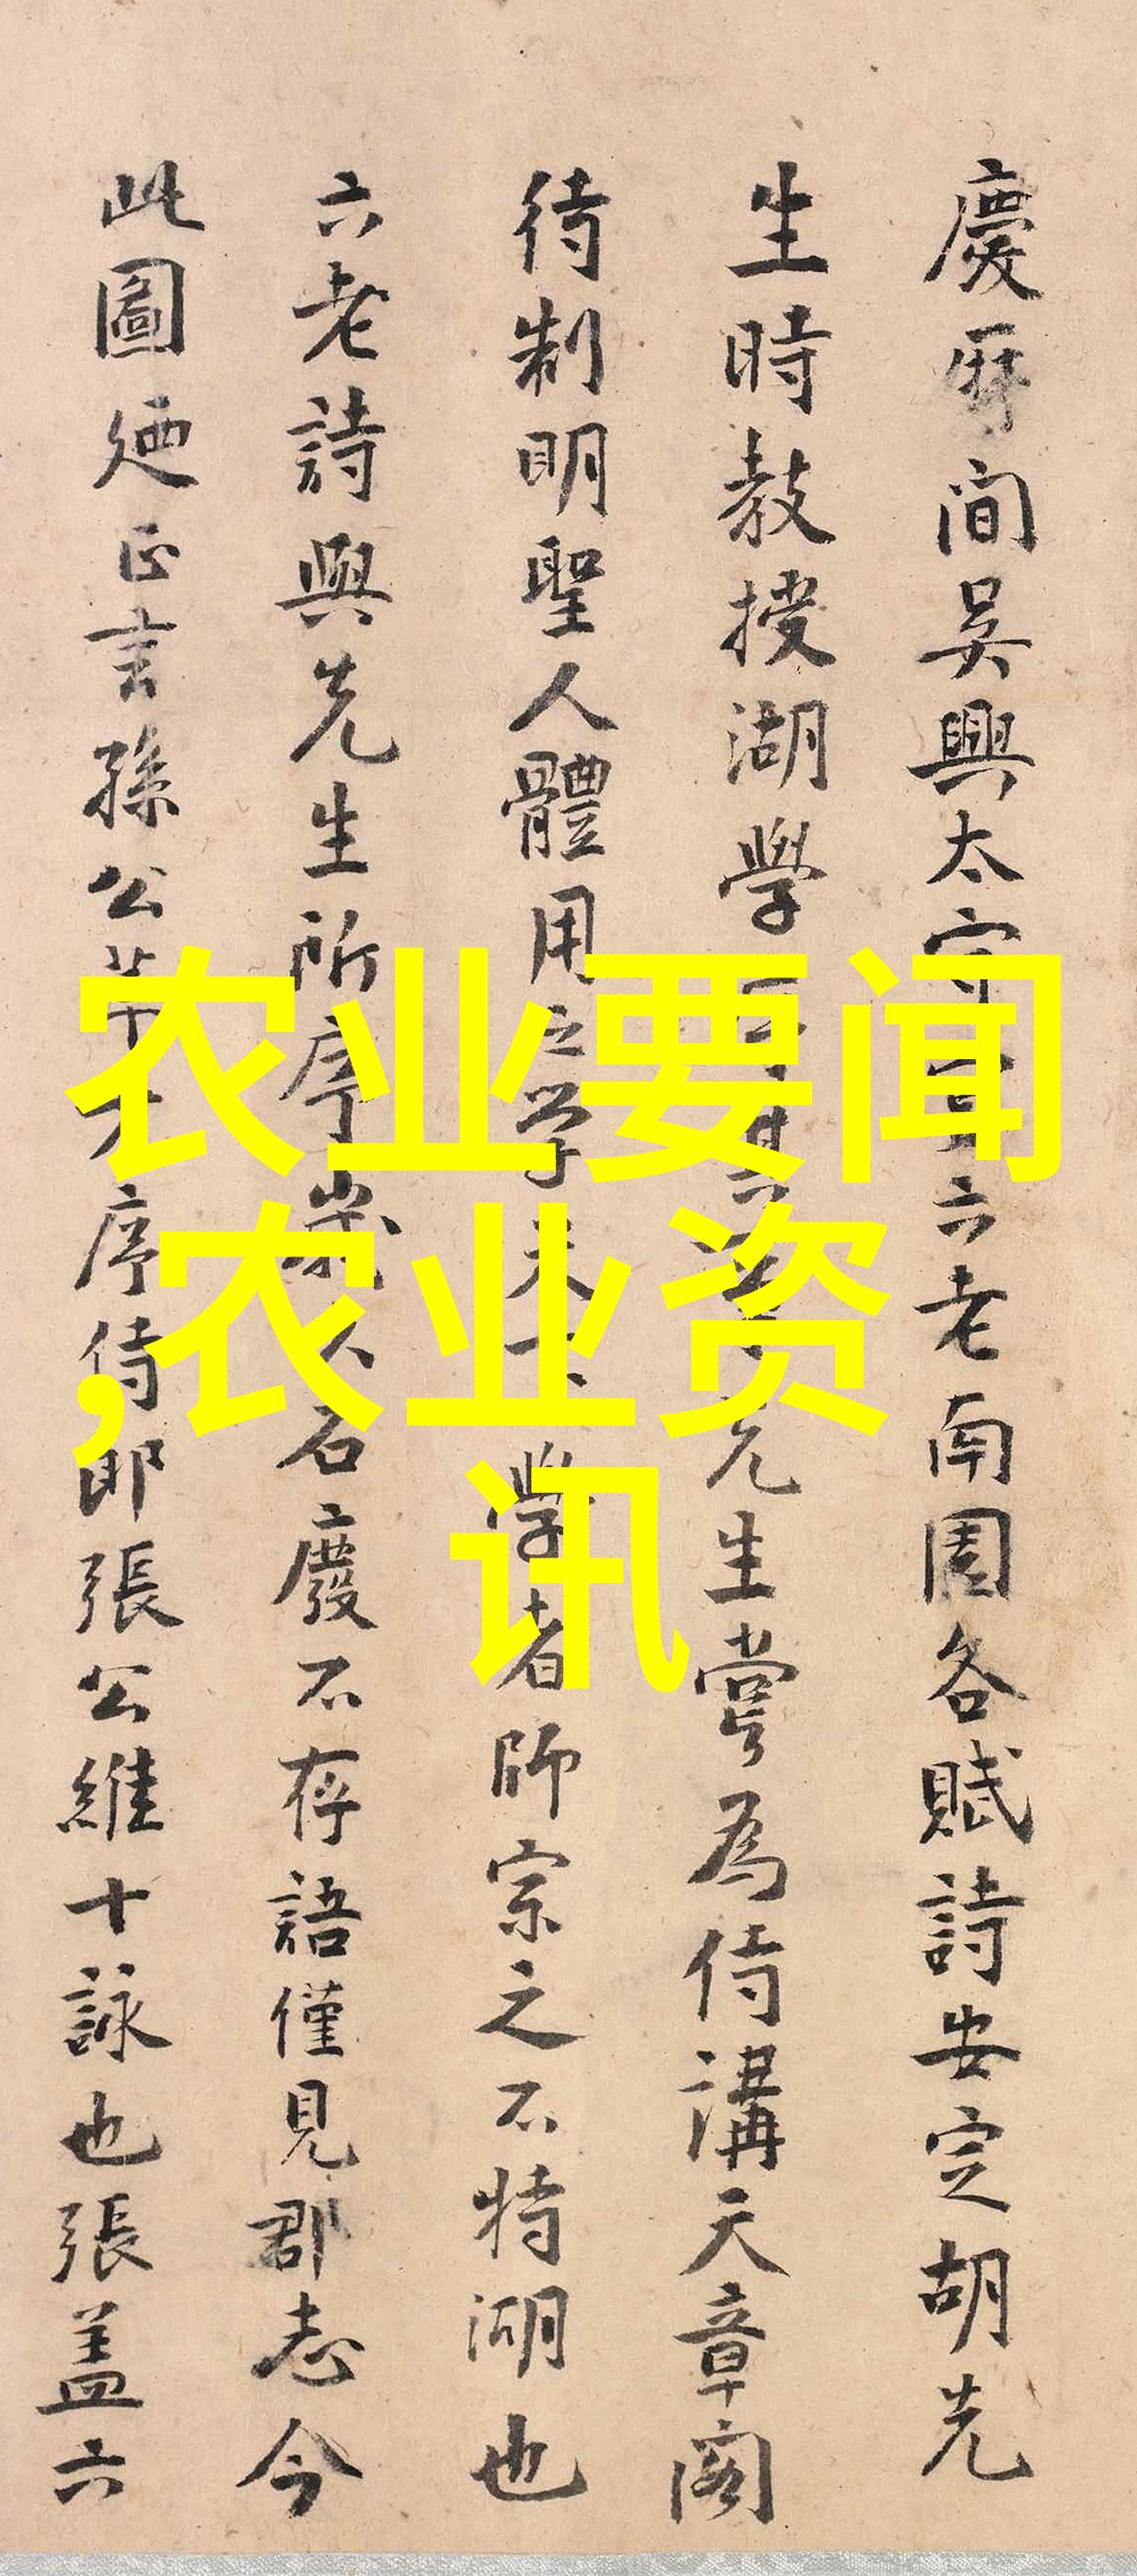 慶曆間吳興太守六老南園各賦詩安定胡先
生時教授湖學先生嘗為侍講天章閣
待制明聖人體用之學學者師宗之不特湖也
六老詩與先生所序石廢不存語僅見郡志今
此圖廼正言孫公序侍郎張公維十詠也張蓋六
农业要闻
,农业资
讯